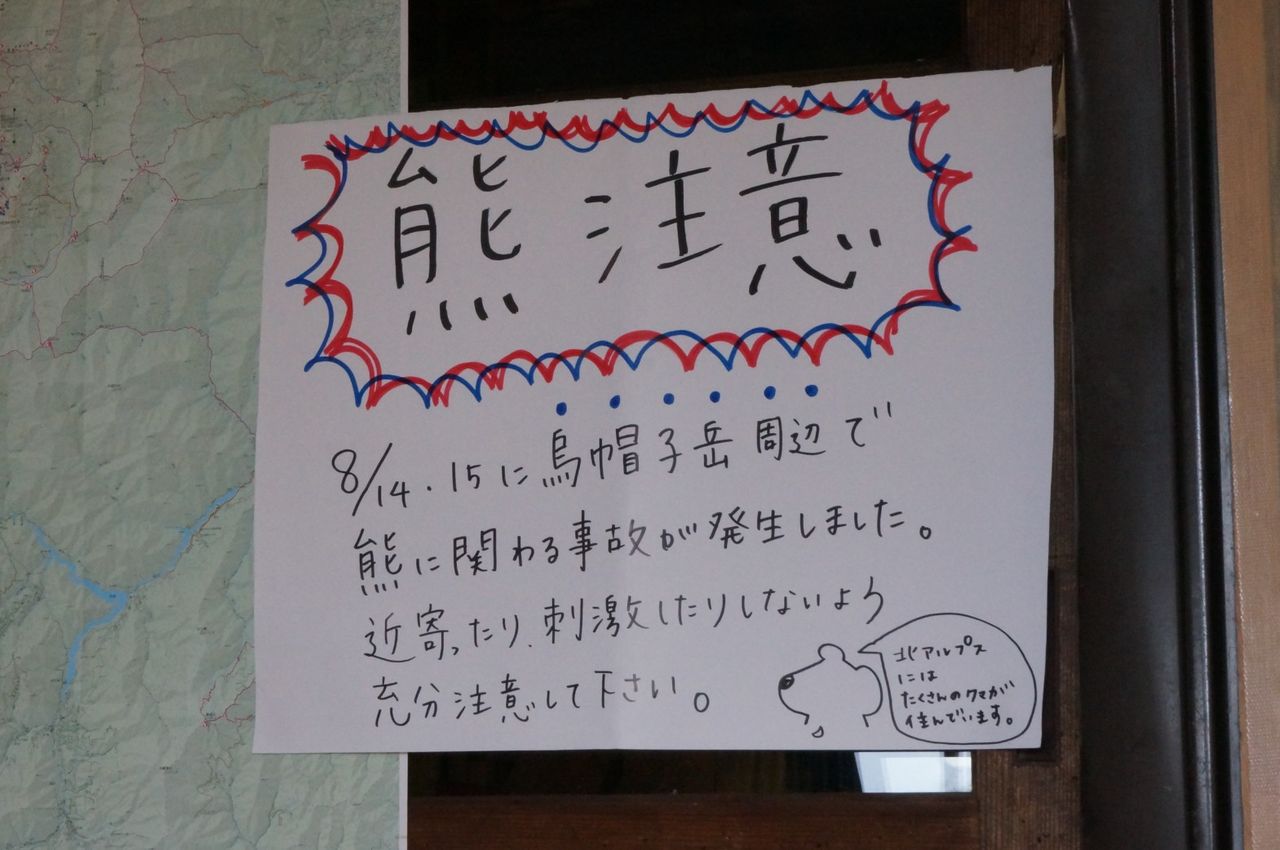 熊注意
8/14・15に烏帽子岳周辺で
熊に関わる事故が発生しました。
近寄ったり、刺激したりしないよう
充分注意して下さい。
北アルプス
には
たくさんのクマが
住んでいます。